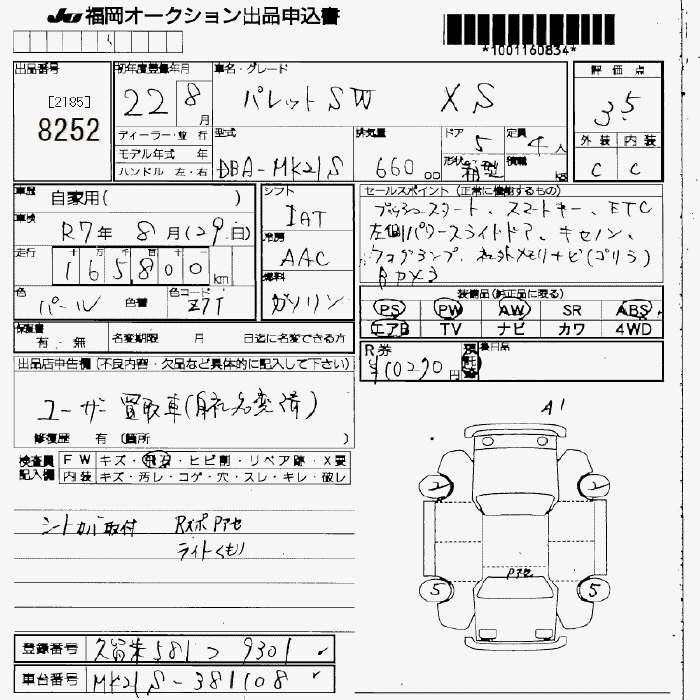 JU 福岡オークション出品申込書
*1001160834*
出品番号
[2185]
8252
初年度登録年月
22 8月
ディーラー・並行
モデル年式 年
ハンドル 左・右
車名・グレード
パレットSW XS
型式
DBA-MK21S
排気量
660 cc
ドア
5
形状
箱型
定員
4人
積載
kg
評価点
3.5
外装 内装
C C
車歴
自家用( )
車検
R7年 8月(29日)
走行
十 万 千 百 十
165800 km
色
パール 色替
色コード
Z7T
シフト
IAT
冷房
AAC
燃料
ガソリン
セールスポイント(正常に機能するもの)
プッシュスタート、スマートキー、ETC
左側パワースライドドア、キセノン、
フォグランプ、
装備品(純正品に限る)
PS PW AW SR ABS
エアB TV ナビ カワ 4WD
保証書
有・無
名変期限 月 日迄に名変できる方
R券
¥10290円
預託済
後日品
出品店申告欄(不良内容・欠品など具体的に記入して下さい)
ユーザー買取車(月末名変済)
修復歴 有(箇所 )
検査員記入欄
FW キズ・飛石・ヒビ割・リペア跡・X要
内装 キズ・汚レ・コゲ・穴・スレ・キレ・破レ
シートカバー取付 RスポPアセ
ライトくもり
A1
2 2
Pアセ
5 5
登録番号 久留米581つ9301
車台番号 MK21S-381108